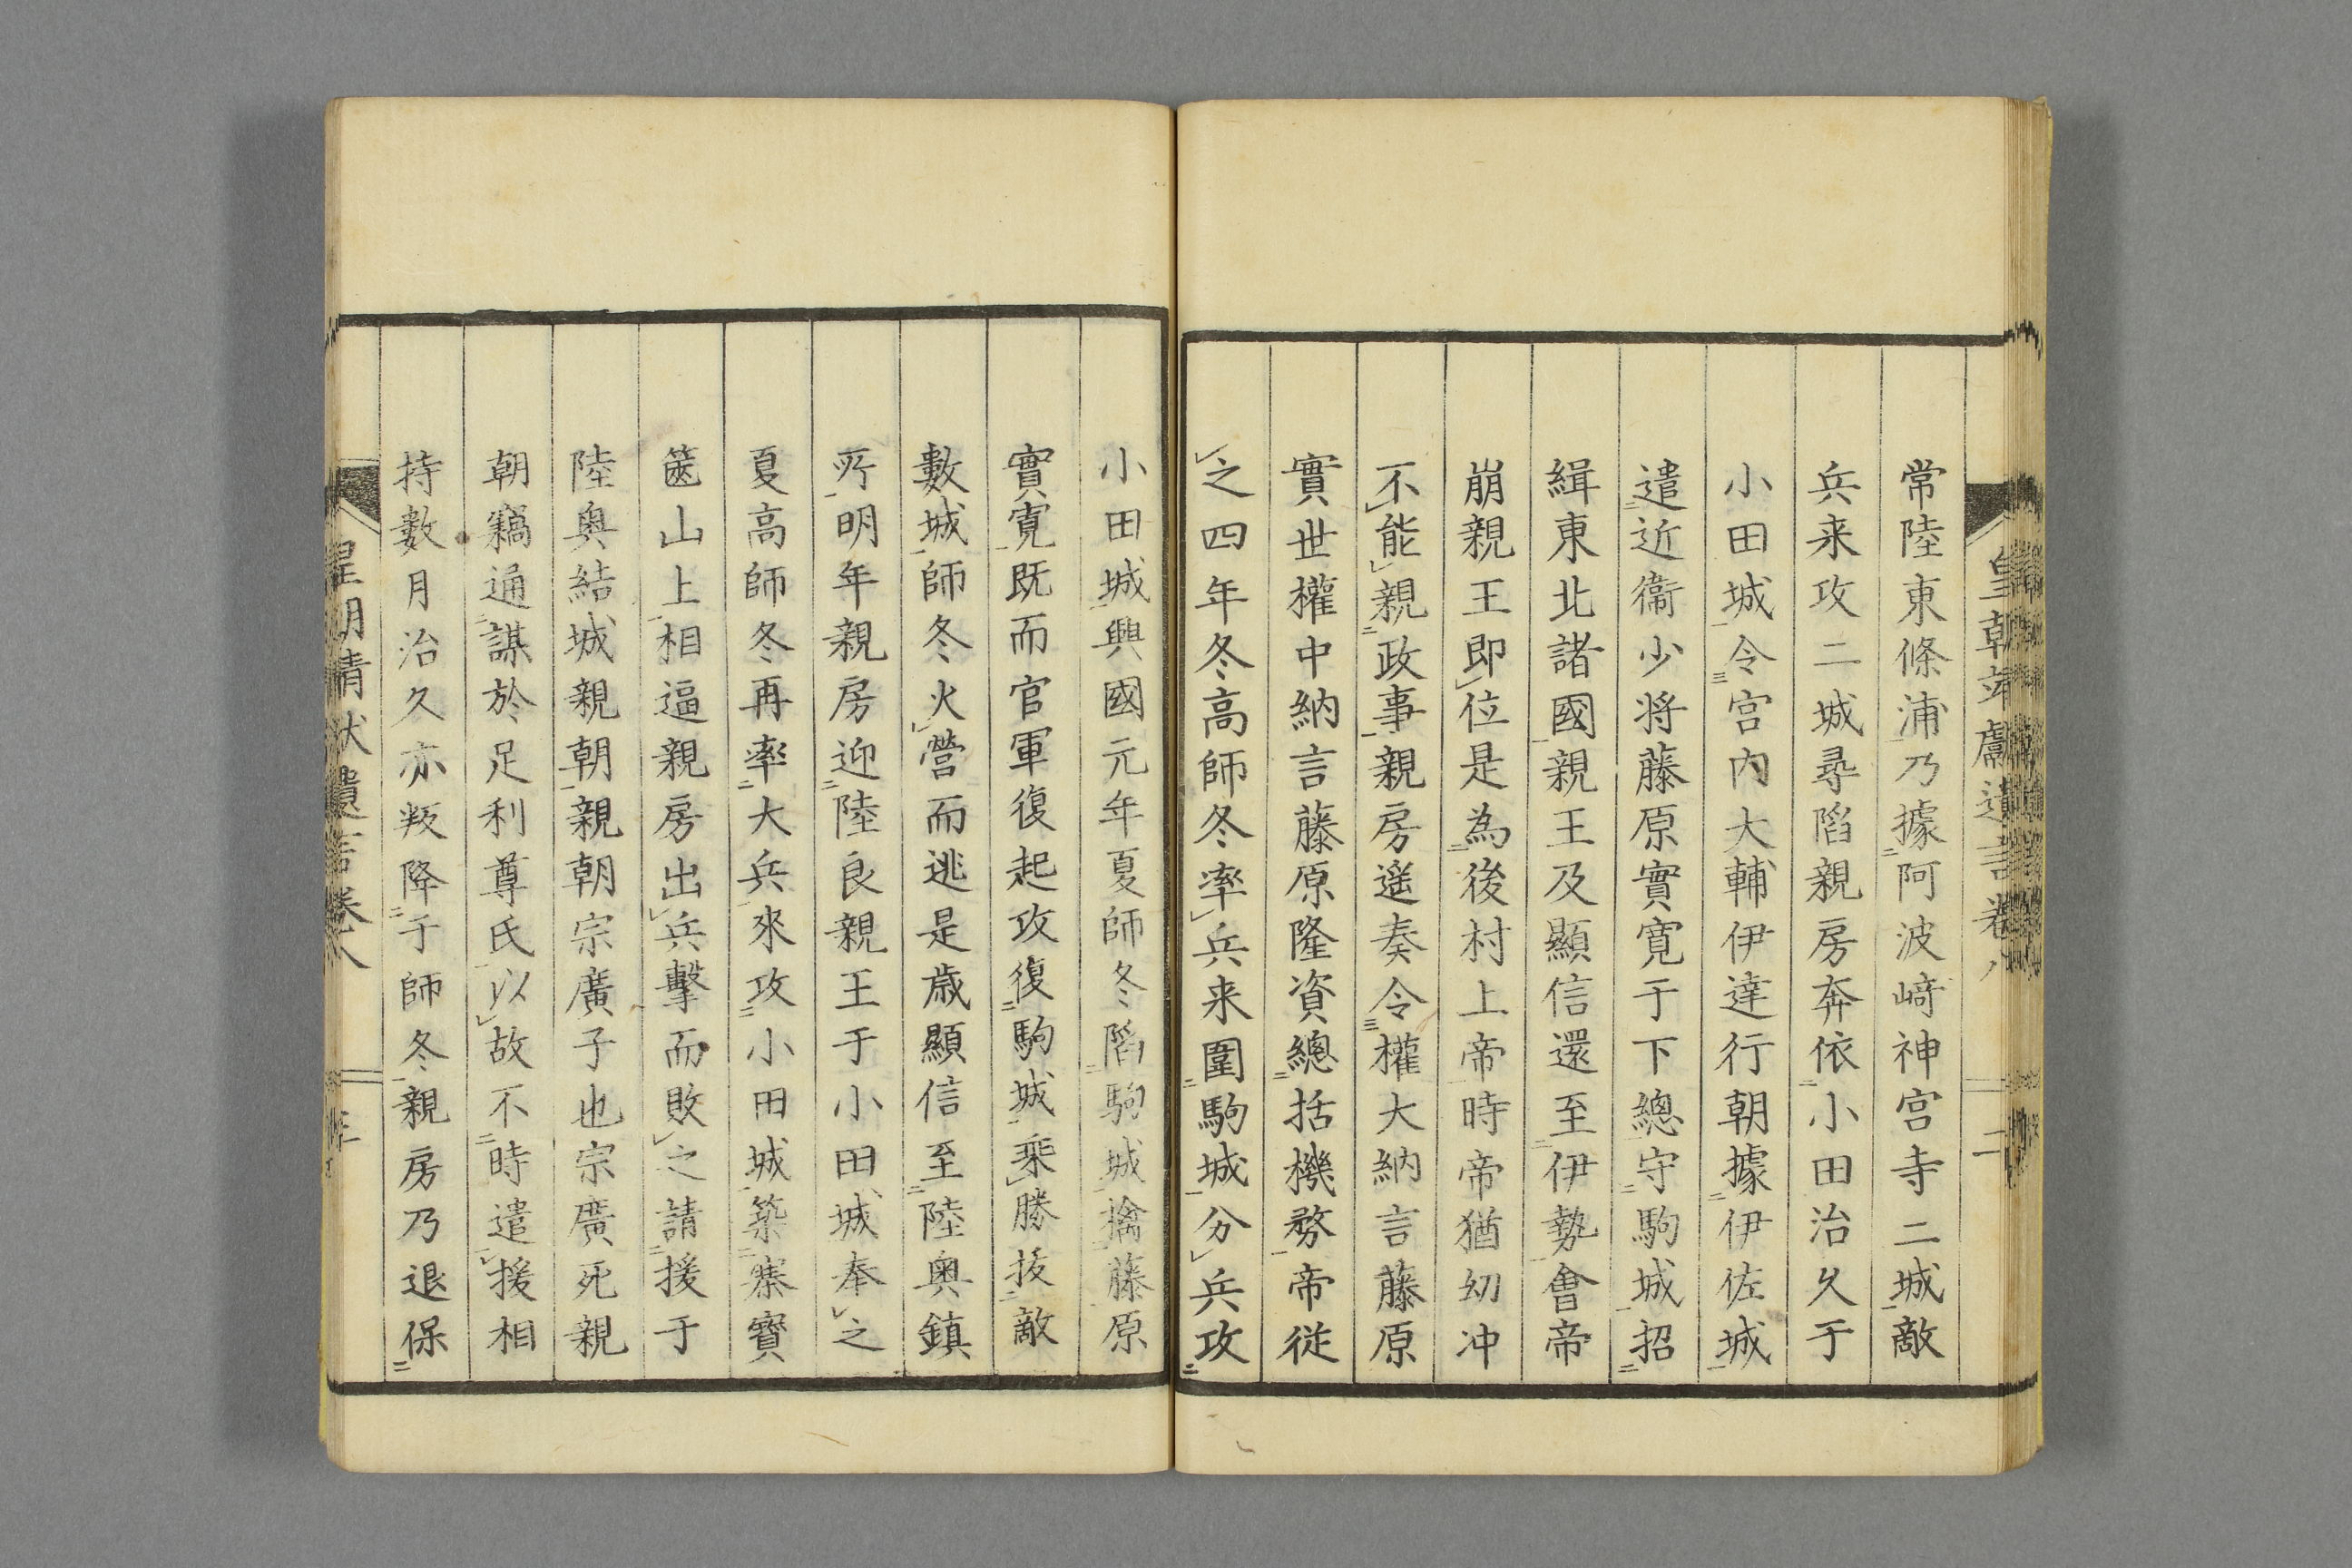 常陸東條浦乃據阿波﨑神宮寺二城敵
兵来攻二城尋陷親房奔依小田治久于
小田城令宮内大輔伊達行朝據伊佐城
遣近衞少将藤原實寛于下總守駒城招
緝東北諸國親王及顯信還至伊勢會帝
崩親王即位是為後村上帝時帝猶幼冲
不能親政事親房遥奏令權大納言藤原
實世權中納言藤原隆資總括機務帝從
之四年冬高師冬率兵来圍駒城分兵攻
小田城興國元年夏師冬陷駒城擒藤原
實寛既而官軍復起攻復駒城乘勝抜敵
數城師冬火營而逃是歳顯信至陸奥鎮
所明年親房迎陸良親王于小田城奉之
夏高師冬再率大兵來攻小田城築寨寶
篋山上相逼親房出兵擊而敗之請援于
陸奥結城親朝親朝宗廣子也宗廣死親
朝竊通謀於足利尊氏以故不時遣援相
持數月治久亦叛降于師冬親房乃退保